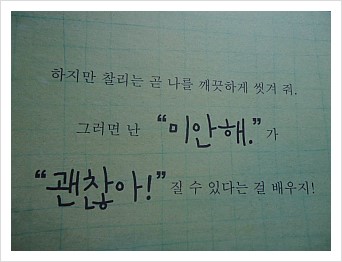 하지만 찰리는 곧 나를 깨끗하게 씻겨 줘.
그러면 난 “미안해.”가
“괜찮아!”질 수 있다는 걸 배우지!